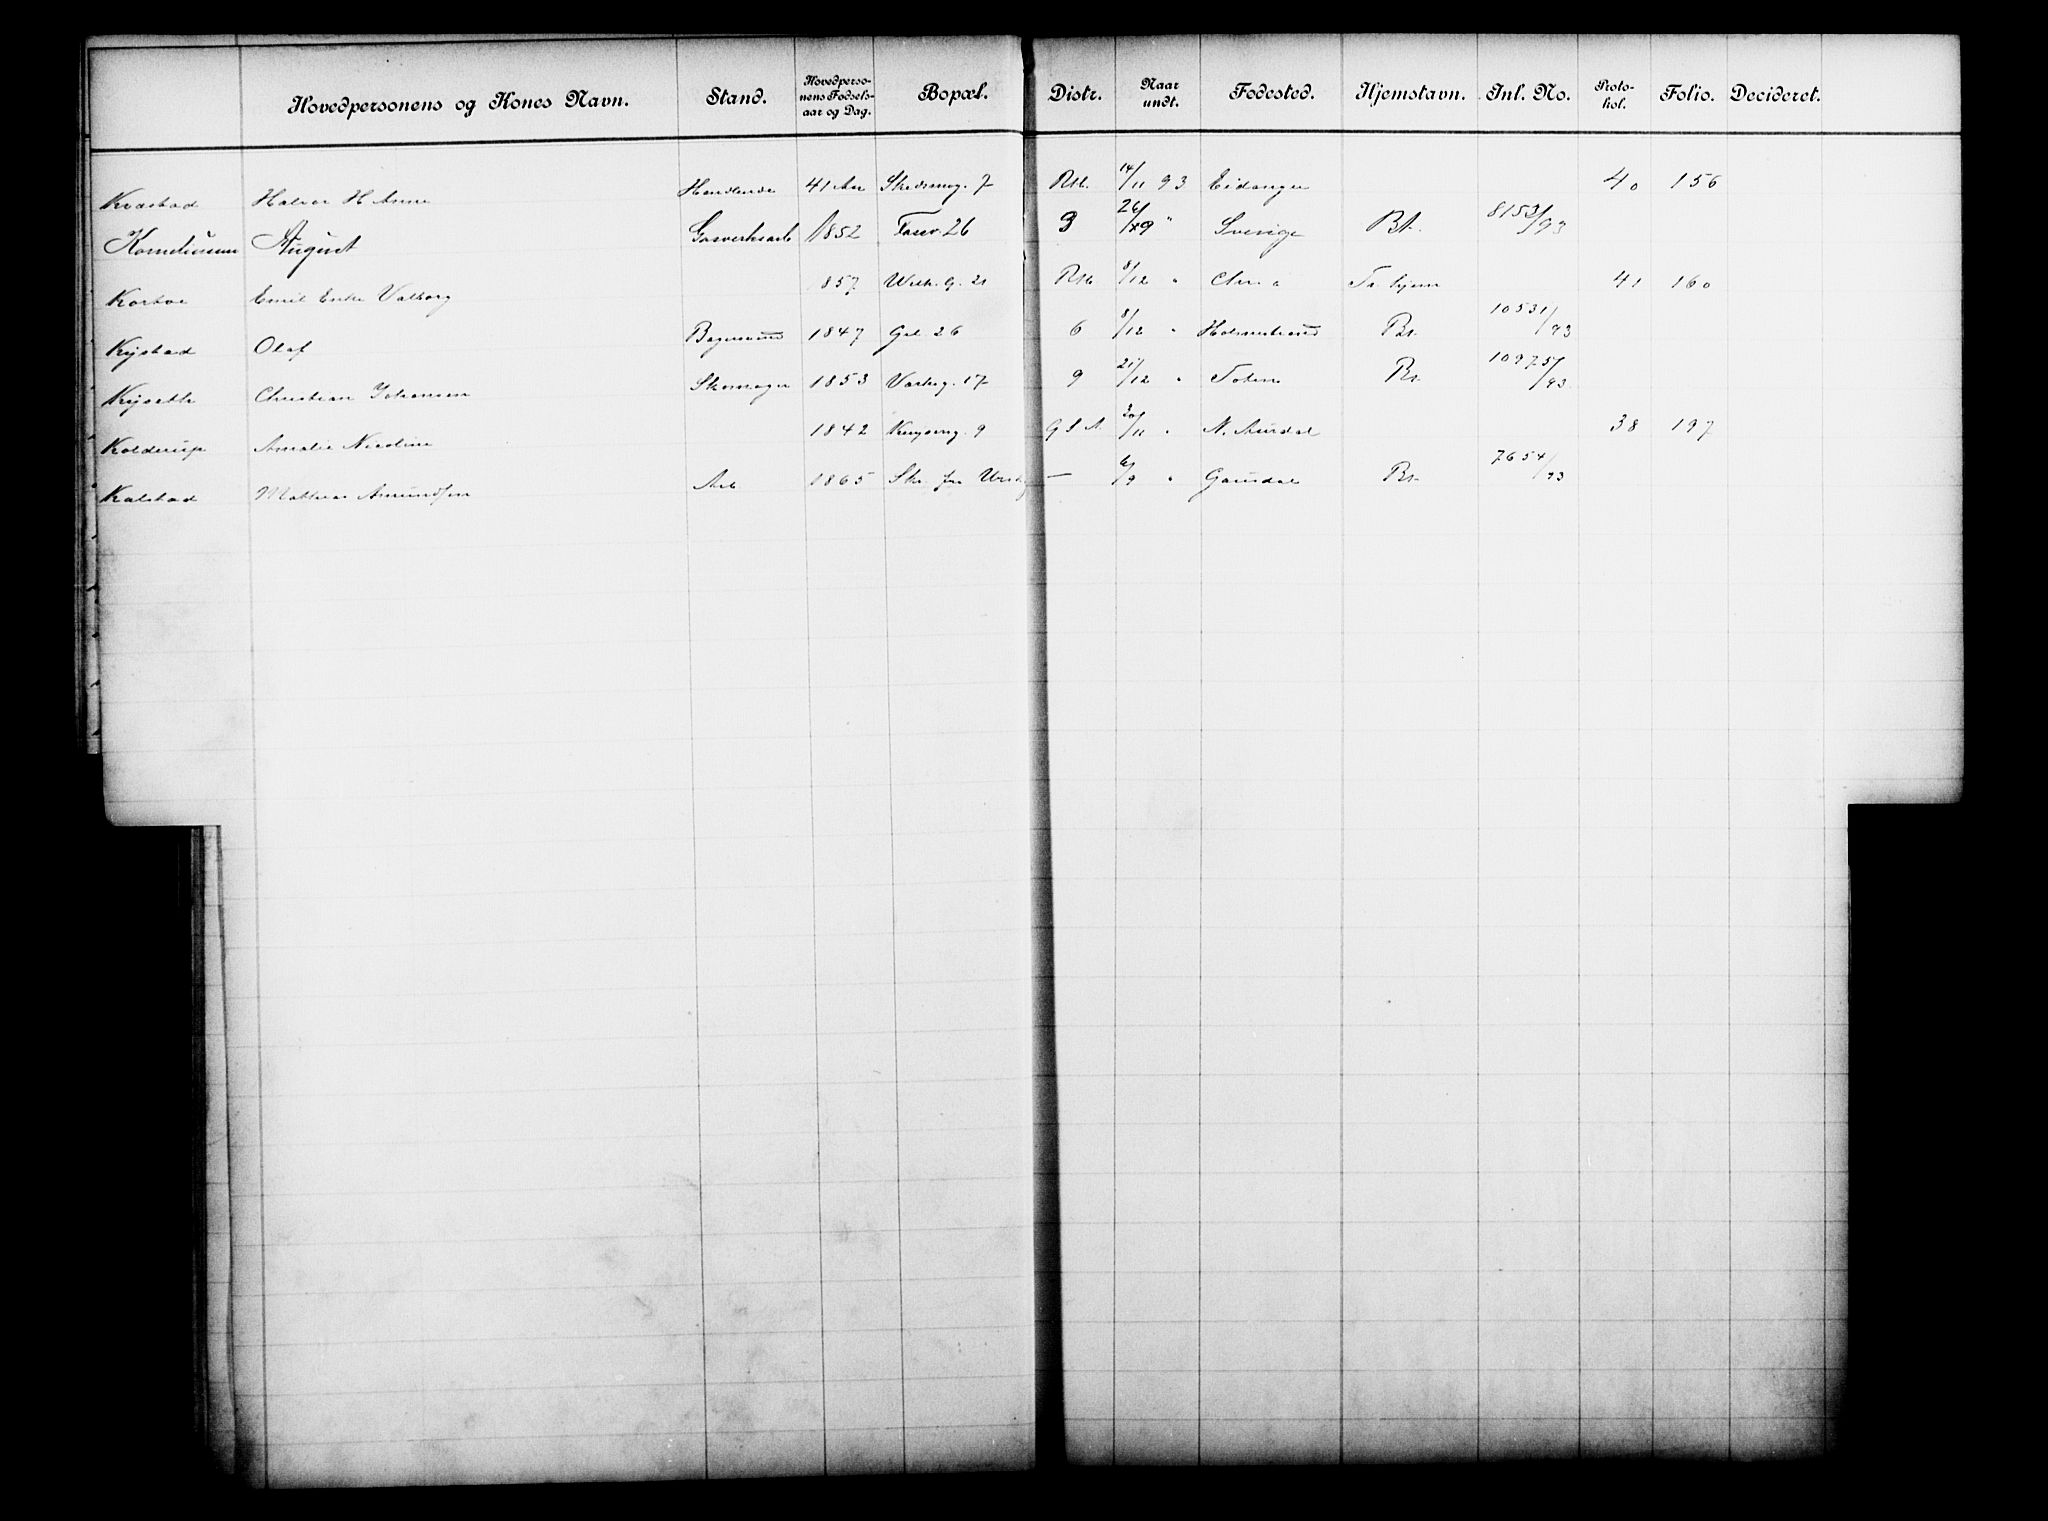 Hovedpersonens og Kones Navn. Stand. Hovedpersonens Fødselsaar og Dag. Bopæl. Distr. Naar undt. Fødested. Hjemstavn. Inl. No. Protokol. Folio. Decideret.
Kvastad Halvor H Anne Handlende 41 Aar Skedsmog. 7 Rst. 14/11 93 Eidanger 40 156
Korneliussen August Gasverksarb 1852 Fossv. 26 3 26/9 " Sverige Bt. 8153/93
Korboe Emil Enke Valborg 1857 Welh. G. 21 Rst. 8/12 " Chr. a Tr. hjem 41 160
Kijstad Olaf Bagersvend 1847 Gel 26 6 8/12 " Holmestrand Bt. 10531/93
Kijseth Christian Johansen Skomager 1853 9 21/12 " Toten Bt. 10975/93
Kolderup Amalie Nicoline 1842 9 /11 " N. Aurdal 38 197
Kalstad Mathias Amundsen Arb 1865 Skr. fra — 6/9 " Gausdal Bt. 7654/93